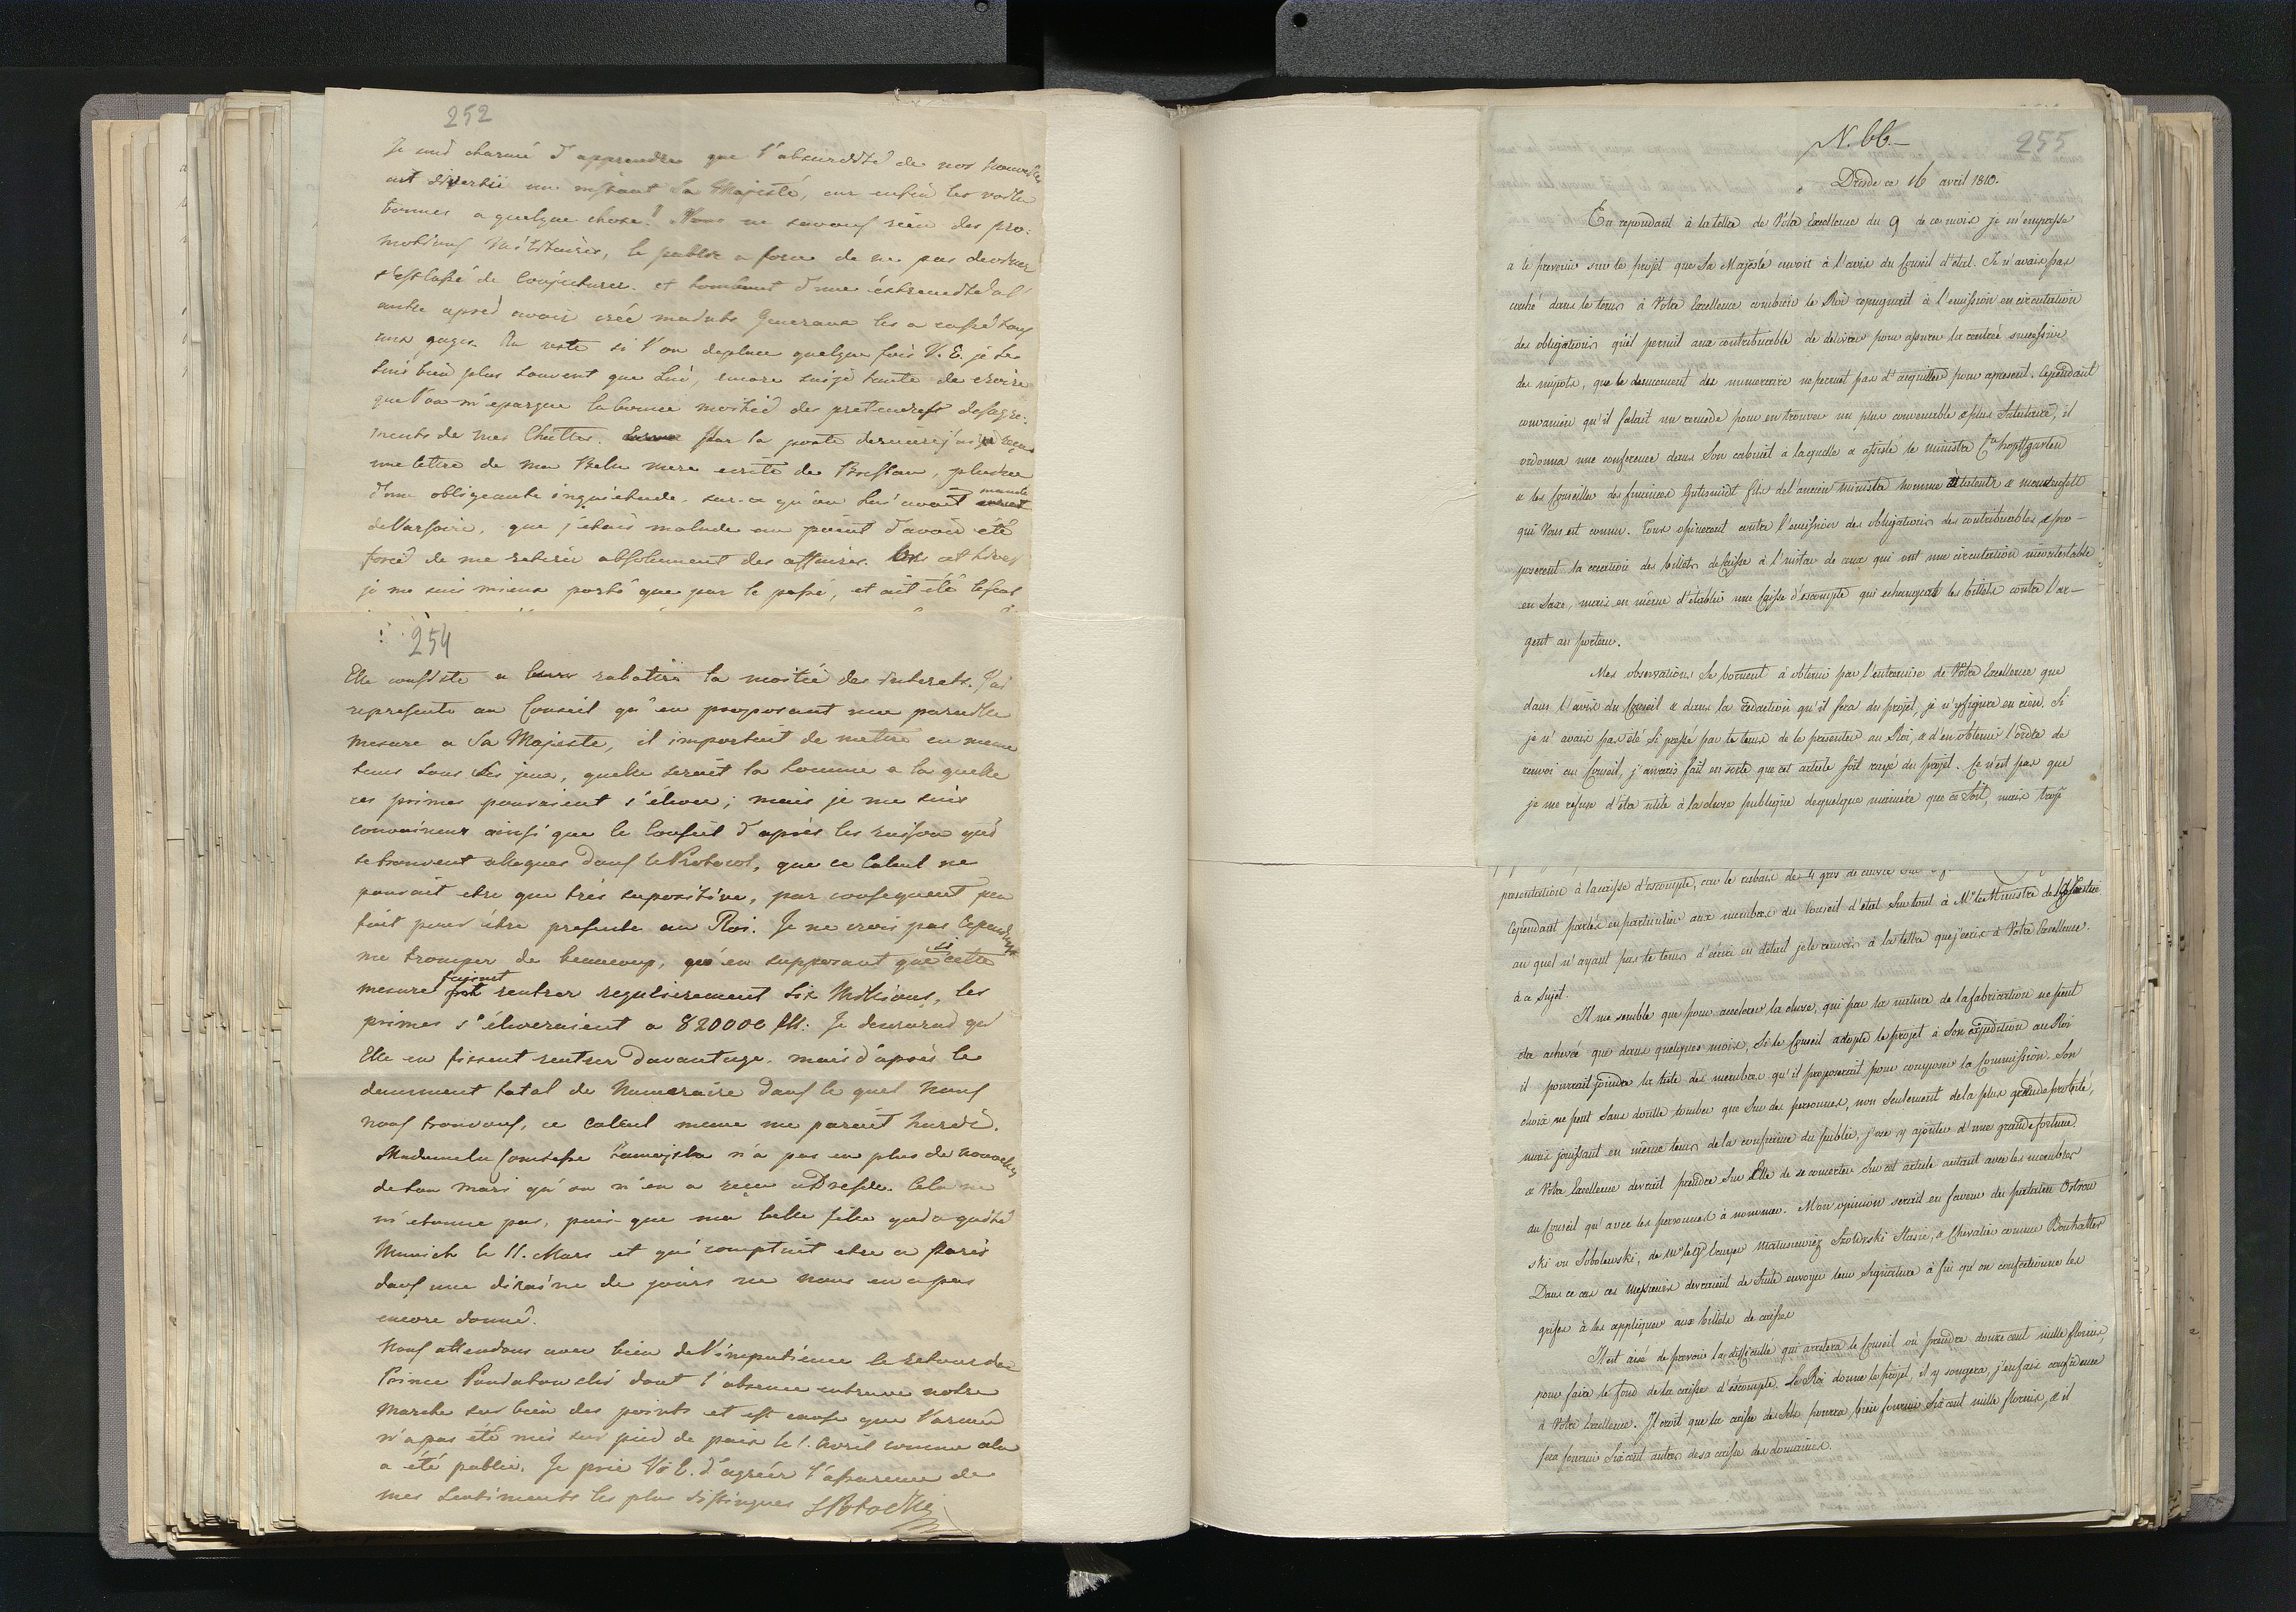 252
Je suis charmé d'apprendre que l'absurdité de nos nouvelles
ait divertie un instant Sa Majesté, car enfin les voila
bonnes a quelque chose! Nous ne savons rien des pro-
motions Militaires, le public a force de ne pas deviner
s'est lassé de conjecturer. et tombant d'une extremité a l'
autre apres avoir créé maints Generaux les a cassé tous
aux gages. Au reste si l'on deplace quelque fois V. E. je le
suis bien plus souvent que Lui, encore suis-je tenté de croire
que l'on m'epargne la bonne moitié des pretendues desagre-
ments de mes Chuttes. Par la poste derniere j'ai reçue
une lettre de ma Belle mere ecrite de Breslau, pleine
d'une obligeante inquietude. sur-ce qu'on lui avait mandé
de Varsovie, que j'etais malade au point d'avoir été
forcé de me retirer absolument des affaires. cet hiver
je me suis mieux porté que par le passé, et ait été le seul
254
Elle consiste a leurs rabattre la moitié des interets. J'ai
representé au Conseil qu'en proposant une pareille
mesure a Sa Majeste, il importait de mettre en meme
tems sous Ses jeux, quelle serait la somme a la quelle
ces primes pouraient s'élever; mais je me suis
convaincu ainsi que le Conseil d'après les raisons qui
se trouvent alleguées dans le Protocol, que ce Calcul ne
pouvait etre que très supositive, par consequent peu
fait pour être presenté au Roi. Je ne crois pas cependant
me tromper de beaucoup, qu'en supposant que si cette
mesure faisait rentrer regulierement Six Millions, les
primes s'éleveraient a 820000 fl: Je desirerais qu'
Elle en fissent rentrer davantage. mais d'après le
denument total de Numeraire dans le quel Nous
nous trouvons, ce calcul meme me parait hardi.
Mademe la Comtesse Zamoyska n'a pas eu plus de nouvelles
de son mari qu'on n'en a reçu a Dresde. Cela ne
m'etonne pas, puis-que ma belle fille qui a quitté
Munich le 11. Mars et qui comptait etre a Paris
dans une dixaine de jours ne nous en a pas
encore donné.
Nous attendons avec bien de l'impatience le retour du
Prince Poniatowski dont l'absence entrave notre
Marche sur bien des points et est cause que l'armée
n'a pas été mis sur pied de paix le 1. Avril comme cela
a été publié. Je prie V. E. d'agréer l'assurence de
mes sentiments les plus distingues SPotocki
N. 66.
255
Dresde ce 16 avril 1810.
En repondant à la lettre de Votre Excellence du 9 de ce mois je m'empresse
a le prevenir sur le projet que Sa Majesté envoie à l'avis du Conseil d'état. Je n'avais pas
caché dans le tems à Votre Excellence combien le Roi repugnait à l'emission en circulation
des obligations qu'il permit aux contribuable de délivrer pour assurer la rentrée successive
des impots, que le denuement de numeraire ne permet pas d'acquitter pour apresent. Cependant
convaincu qu'il falait un remede pour en trouver un plus convenable & plus Salutaire, il
ordonna une conference dans Son cabinet à laquelle a assisté le ministre Cte hopffgarten
& les Conseiller des finances Gutschmidt fils de l'ancien ministre homme à talents & manteufell
qui Vous est connu. Tous opinerent contre l'emission des obligations des contribuables & pro-
poserent la creation des billets de Caisse à l'instar de ceux qui ont une circulation incontestable
en Saxe, mais en même d'etablir une Caisse d'escompte qui echangeat les billets contre l'ar-
gent au porteur.
Mes observations se bornent à obtenir par l'entremise de Votre Excellence que
dans l'avis du Conseil & dans la redaction qu'il fera du projet, je n'y figure en rien. Si
je n'avais pas été si pressé par le tems de le presenter au Roi, & d'en obtenir l'ordre de
renvoi au Conseil, j'aurais fait en sorte que cet article soit rayé du projet. Ce n'est pas que
je me refuse d'être utile à la chose publique de quelque maniére que ce Soit, mais trop
presentation à la caisse d'escompte, car le rabais de 4 gros de cuivre
Cependant parlés en particulier aux membres du Conseil d'état Sur tout à Mr le Ministre de la Justice
au quel n'ayant pas le tems d'écrire en détail je le renvois à la lettre que j'écris à Votre Excellence.
à ce sujet.
Il me semble que pour accelerer la chose, qui par la nature de la fabrication ne peut
être achevée que dans quelques mois, Si le Conseil adopte le projet à Son expedition au Roi
il pourrait joindre la liste des membres qu'il proposerait pour composer la Commission. Son
choix ne peut Sans doute tomber que Sur des personnes, non seulement de la plus grande probité,
mais jouissant en même tems de la confience du public, j'ose y ajouter d'une grande fortune.
& Votre Excellence devrait prendre Sur Elle de se concerter Sur cet article autant avec les membres
du Conseil qu'avec les personnes à nommer. Mon opinion serait en faveur du palatin Ostrow
ski ou Sobolewski, de Matusewicz Szoldrski Stasic, & Chevalier comme Bouhalter
Dans ce cas ces Messieurs devraient de Suite envoyer leur Signature à fin qu'on confectionne les
grifes à les appliquer aux billets de caisse
Il est aisé de prevoir la difficulté qui arretera le Conseil où prendre douze cent mille florins,
pour faire le fond de la caisse d'escompte. Le Roi donne le projet, il y songera, j'en fais confidence
à Votre Excellence. Il croit que la caisse de Sels pourra bien fournir Six cent mille florins, & il
fera fournir Six cent autres de sa caisse des domaines.